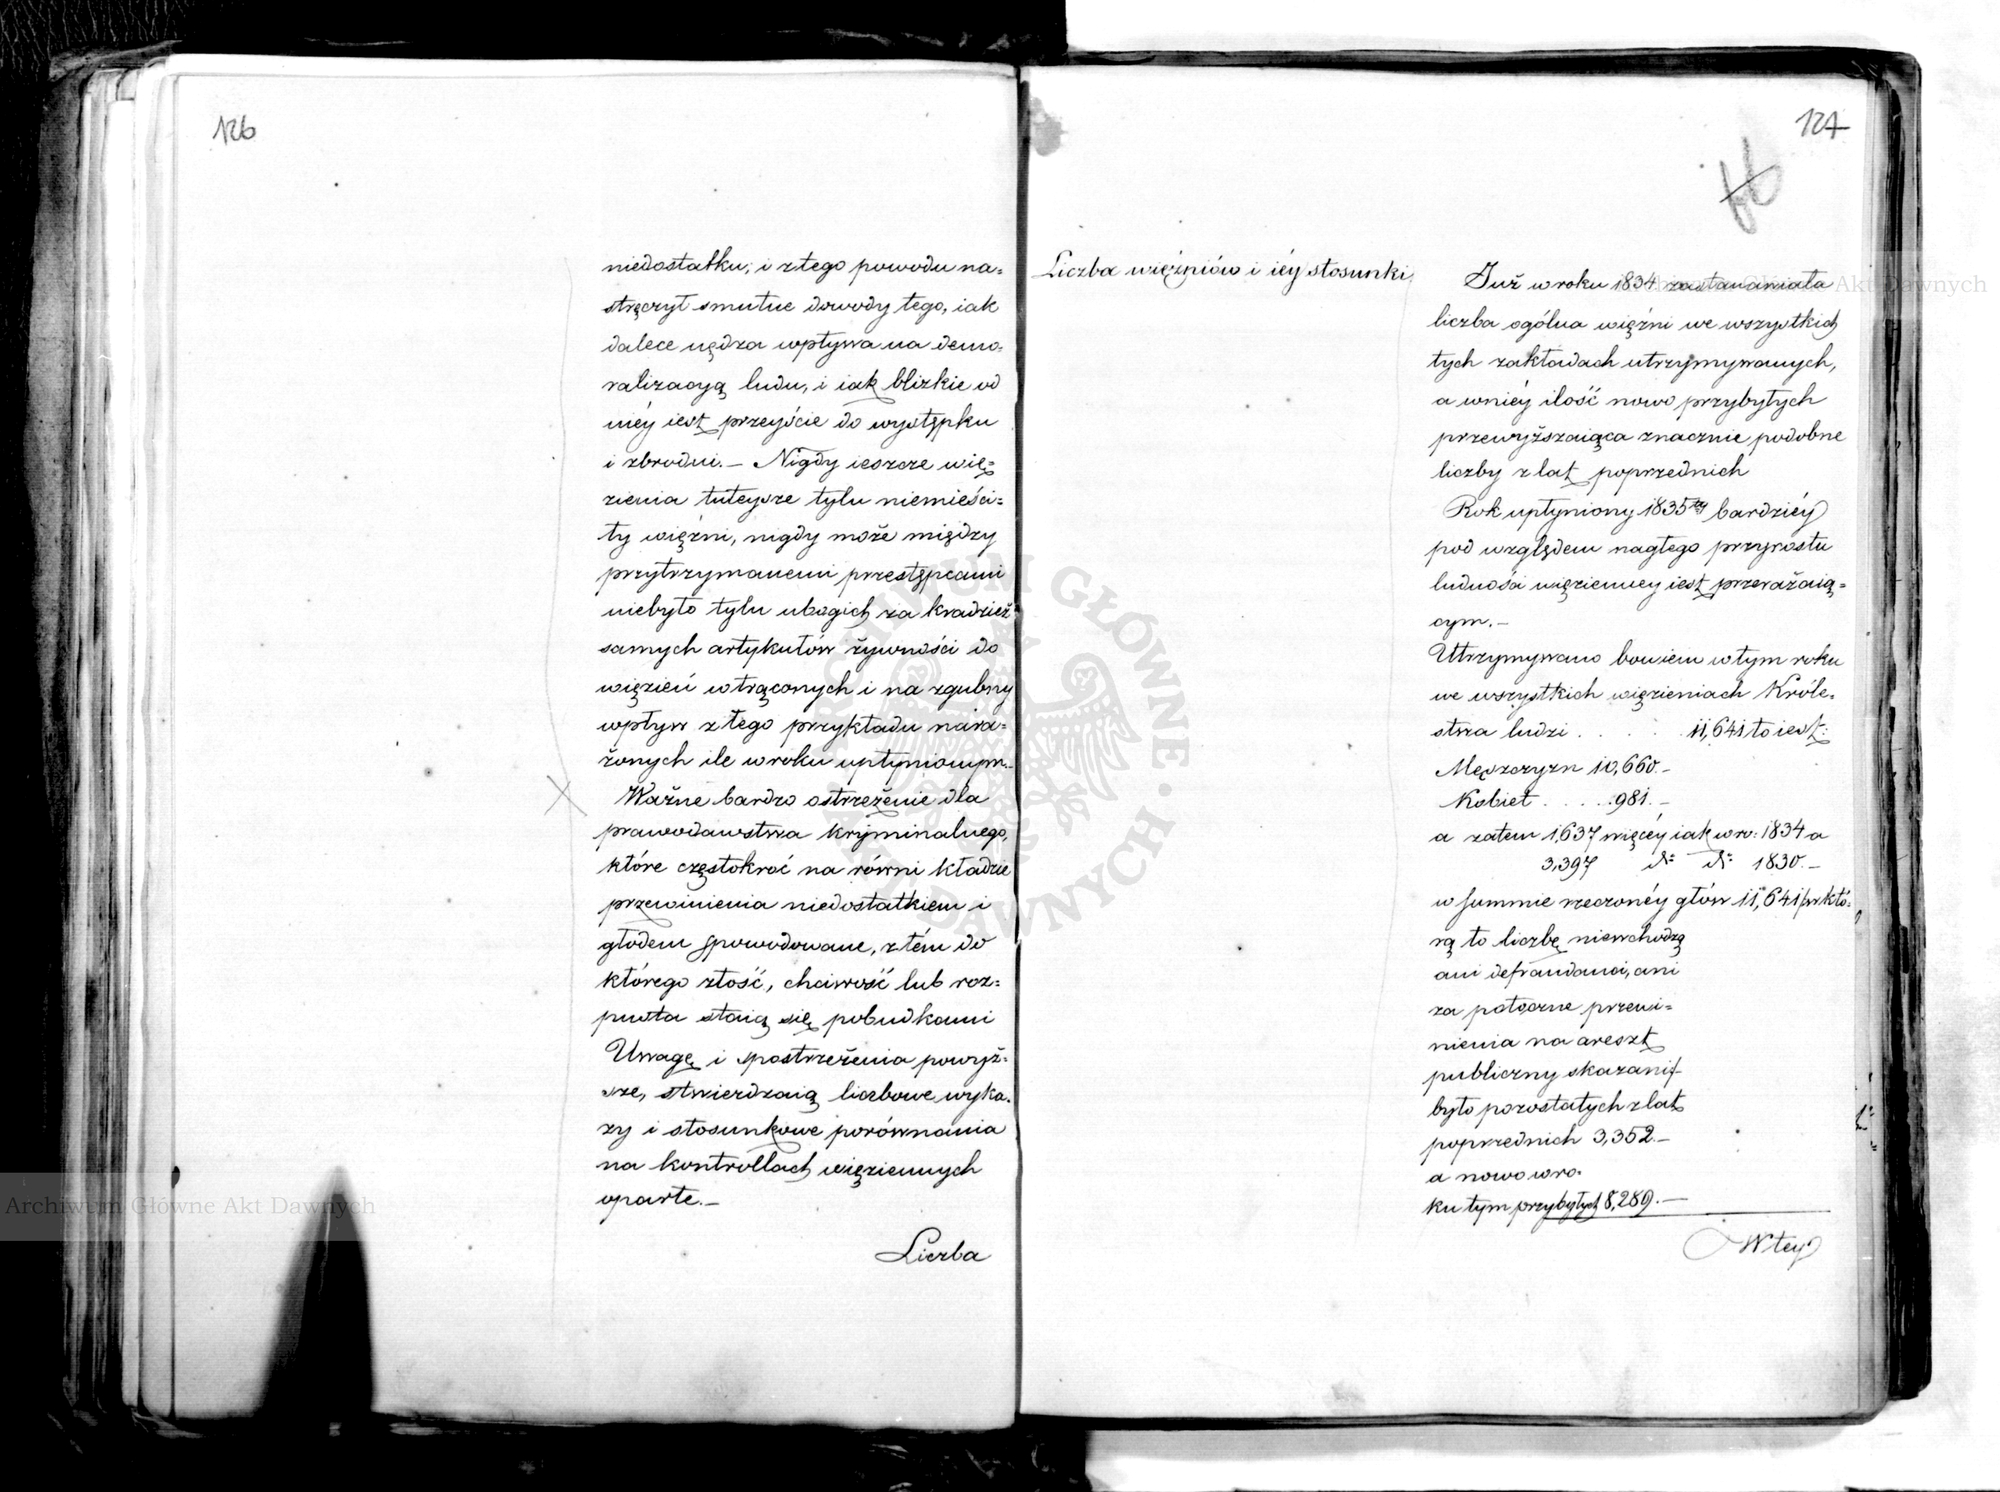 126
niedostatku, i z tego powodu na=
stręczył smutne dowody tego, iak
dalece nędza wpływa na demo=
ralizacyą ludu, i iak blizkie od
niéy iest przeyście do występku
i zbrodni. — Nigdy ieszcze wię=
zienia tuteysze tylu niemieści=
ły więźni, nigdy może między
przytrzymanemi przestępcami
niebyło tylu ubogich za kradzież
samych artykułów żywności do
więzień wtrąconych i na zgubny
wpływ z tego przykładu nara=
żonych ile w roku upłynionym. —
Ważne bardzo ostrzeżenie dla
prawodawstwa kryminalnego,
które częstokroć na równi kładzie
przewinienia niedostatkiem i
głodem spowodowane, z tém do
którego złość, chciwość lub roz=
pusta staią się pobudkami
Uwagę i spostrzeżenia powyż=
sze, stwierdzaią liczbowe wyka=
zy i stosunkowe porównania
na kontrollach więziennych
oparte. —
Liczba
127
Liczba więźniów i iéy stosunki
Już w roku 1834 zastanawiała
liczba ogólna więźni we wszystkich
tych zakładach utrzymywanych,
a wniéy ilość nowo przybyłych
przewyższaiąca znacznie podobne
liczby z lat poprzednich
Rok upłyniony 1835ty bardziéy
pod względem nagłego przyrostu
ludności więzienney iest przerażaią=
cym. —
Utrzymywano bowiem w tym roku
we wszystkich więzieniach Króle=
stwa ludzi . . . . . 11,641 to iest:
Męszczyzn 10,660. —
Kobiet . . . . 981. —
a zatem 1,637 więcéy iak w ro: 1834 a
3,397 do do 1830. —
w summie rzeczonéy głów 11,641 /w któ=
rą to liczbę niewchodzą
ani defraudanci, ani
za potoczne przewi=
nienia na areszt
publiczny skazani/
było pozostałych z lat
poprzednich 3,352. —
a nowo w ro=
ku tym przybyłych 8,289. —
W tey
Archiwum Główne Akt Dawnych
ARCHIWUM GŁÓWNE AKT DAWNYCH
Archiwum Główne Akt Dawnych